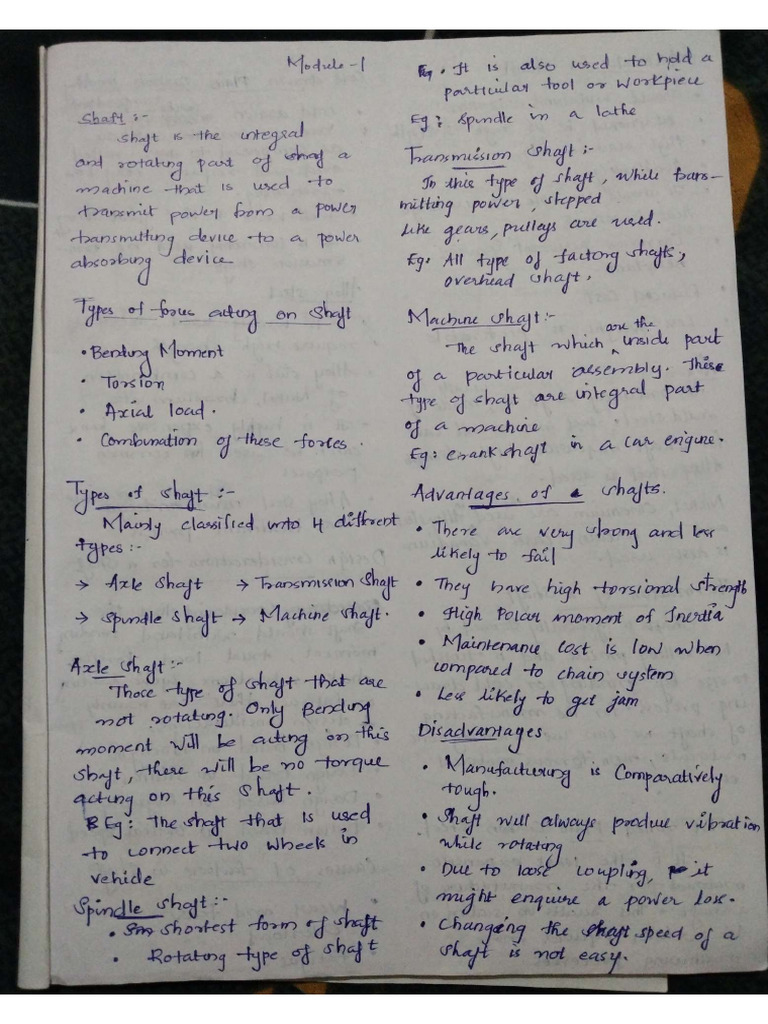 Module-1
Shaft :-
Shaft is the integral
and rotating part of a
machine that is used to
transmit power from a power
transmitting device to a power
absorbing device
Types of forces acting on Shaft
• Bending Moment
• Torsion
• Axial load.
• Combination of these forces.
Types of shaft :-
Mainly classified into 4 different
types:-
→ Axle Shaft → Transmission Shaft
→ Spindle Shaft → Machine Shaft.
Axle shaft :-
Those type of shaft that are
not rotating. Only Bending
moment will be acting on this
shaft, there will be no torque
acting on this shaft.
Eg: The shaft that is used
to connect two wheels in
vehicle
Spindle shaft :-
• shortest form of shaft
• Rotating type of shaft
• It is also used to hold a
particular tool or workpiece
Eg: Spindle in a lathe
Transmission shaft :-
In this type of shaft, while trans-
mitting power, stepped
like gears, pulleys are used.
Eg: All type of factory shafts,
overhead shaft.
Machine shaft :-
The shaft which are the inside part
of a particular assembly. These
type of shaft are integral part
of a machine
Eg: crank shaft in a car engine.
Advantages of shafts.
• There are very strong and less
likely to fail
• They have high torsional strength
• High Polar moment of Inertia
• Maintenance cost is low when
compared to chain system
• Less likely to get jam
Disadvantages
• Manufacturing is Comparatively
tough.
• Shaft will always produce vibration
while rotating
• Due to loose coupling, it
might enquire a power loss.
• Changing the speed of a
shaft is not easy.